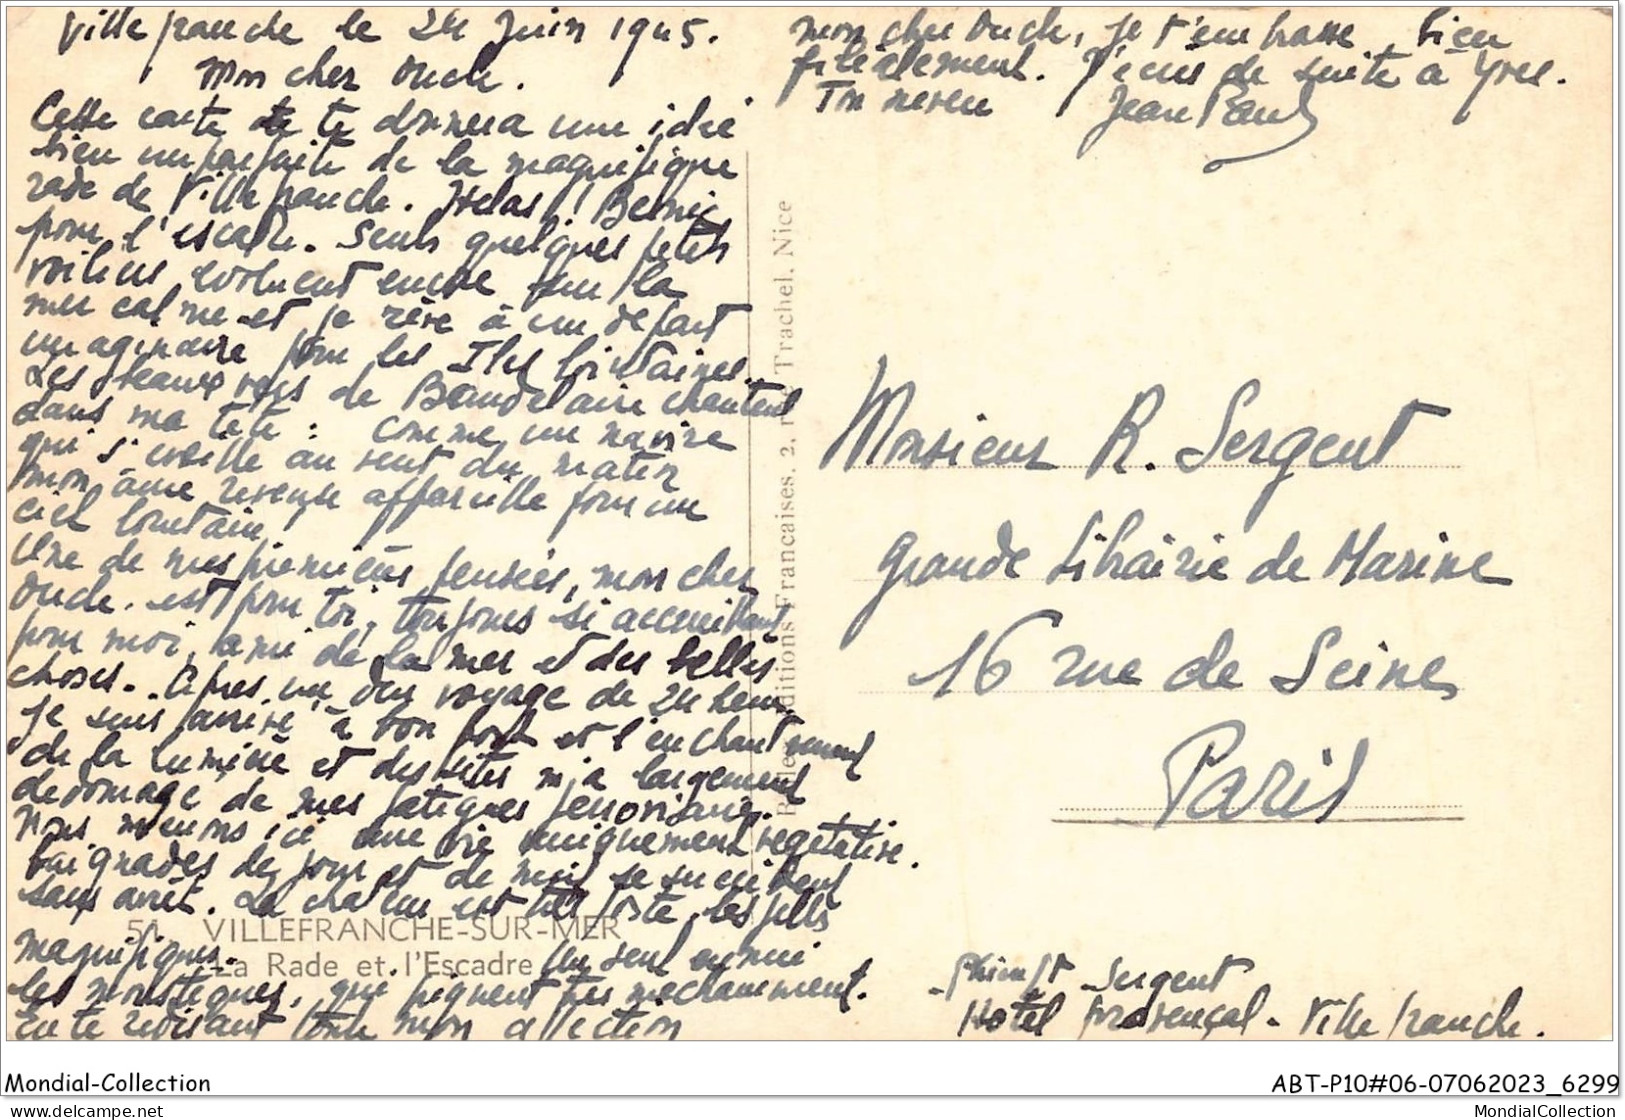 Villefranche le 24 Juin 1945.
Mon cher Oncle.
Cette carte te donnera une idée
bien imparfaite de la magnifique
rade de Villefranche. Hélas !! Bernic
pour l'escadre. Seuls quelques petits
voiliers evoluent encore sur la
mer calme et je rêve à un départ
imaginaire pour les Iles lointaines.
Les beaux vers de Baudelaire chantent
dans ma tête : Comme un navire
qui s'eveille au vent du matin
mon âme reveuse appareille pour un
ciel lointain !
Une de mes premières pensées, mon cher
Oncle. est pour toi, toujours si accueillant
pour moi, ami de la mer et des belles
choses. Apres un dur voyage de 24 heures
je suis arrivé à bon port et l'enchantement
de la lumière et des sites m'a largement
dedomagé de mes fatigues ferroviaires.
Nous menons ici une vie uniquement vegetative.
baignades de jour et de nuit se succedent
sans arrêt. La chaleur est très forte, les filles
magnifiques. Un seul ennui
les moustiques, qui piquent très mechamment.
En te redisant toute mon affection
mon cher Oncle, je t'embrasse bien
filialement. J'ecris de suite à Yves.
Ton neveu Jean Paul
51 VILLEFRANCHE-SUR-MER
La Rade et l'Escadre
Editions Francaises. 2, rue Trachel. Nice
Monsieur R. Sergent
Grande Librairie de Marine
16 rue de Seine
Paris
Sergent
Hotel Provençal - Villefranche.
Mondial-Collection
ABT-P10#06-07062023_6299
www.delcampe.net
MondialCollection